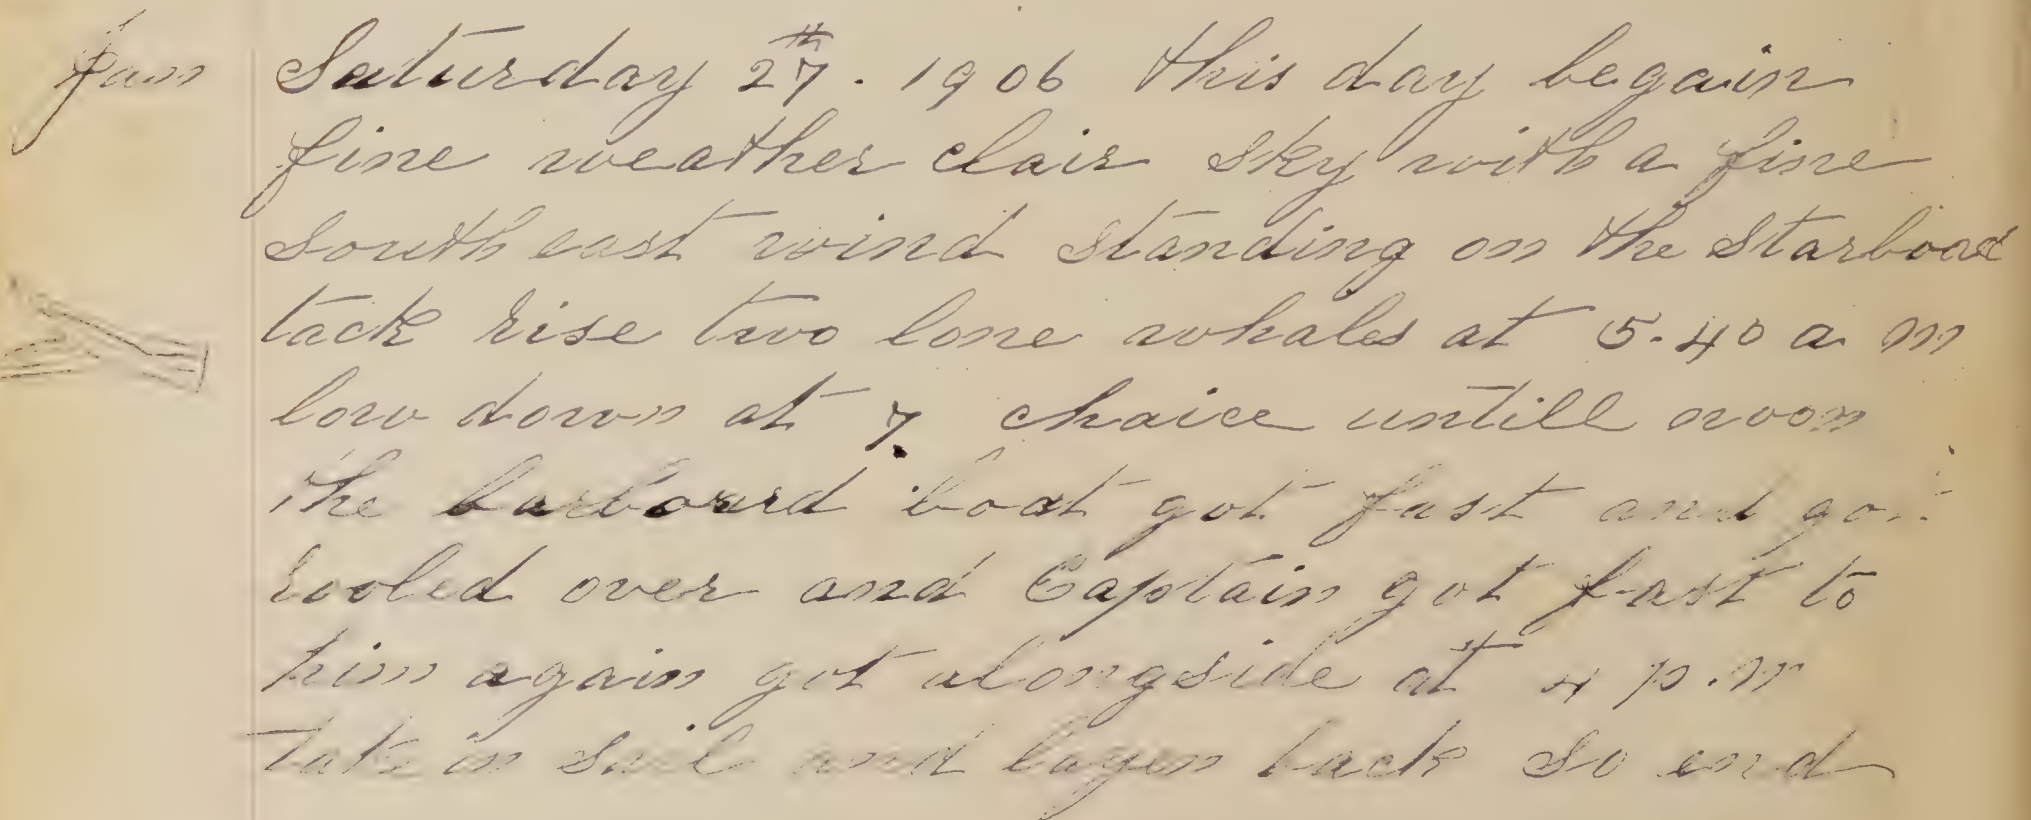 Jan Saturday 27th. 1906 this day begain
fine weather clair sky with a fine
south east wind standing on the Starboard
tack rise two lone whales at 5.40 a m
low down at 7. chaice untill noon
the barboard boat got fast and got
rooled over and Captain got fast to
him again got alongside at 4 p.m
Take in Sail and layen back So end